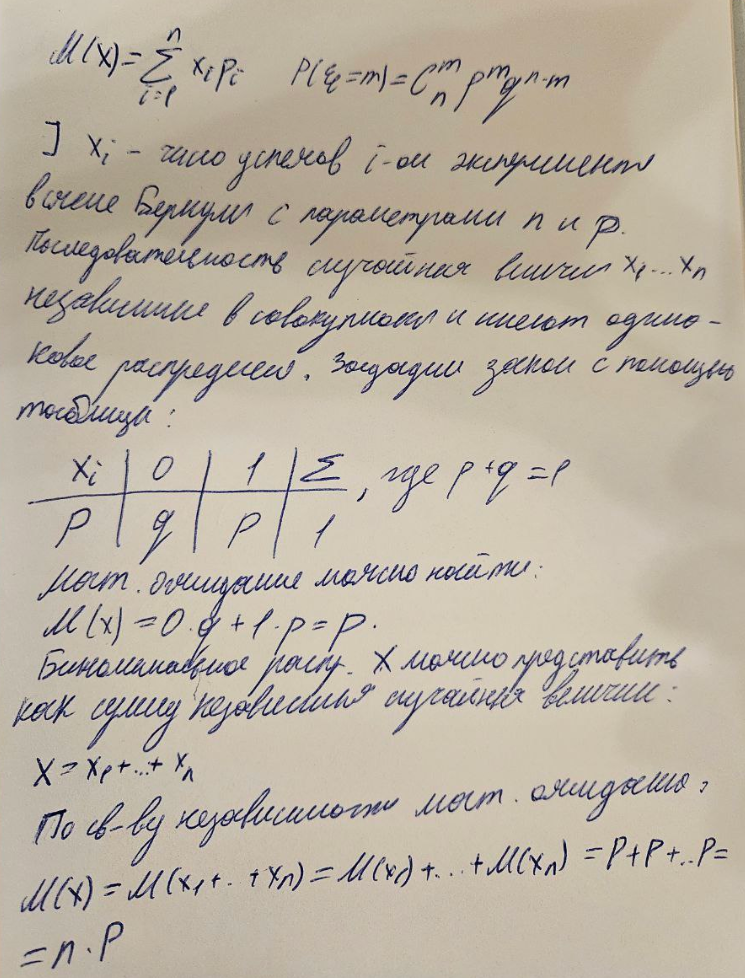 M(X) = Σ_{i=1}^{n} x_i p_i    P(ξ = m) = C_n^m p^m q^{n-m}
] X_i – число успехов i-ом эксперименте
в схеме Бернули с параметрами n и p.
Последовательность случайная величин X_1...X_n
независимые в совокупности и имеют одина-
ковое распределен. Зададим закон с помощью
таблицы:
X_i | 0 | 1 | Σ , где p+q=1
P | q | p | 1
Мат. ожидание можно найти:
M(X) = 0·q + 1·p = p.
Биномиальное распр. X можно представить
как сумму независимых случайных величин:
X = X_1+...+X_n
По св-ву независимости мат. ожидания,
M(X) = M(X_1+..+X_n) = M(X_1)+...+M(X_n) = P+P+..P=
= n·P